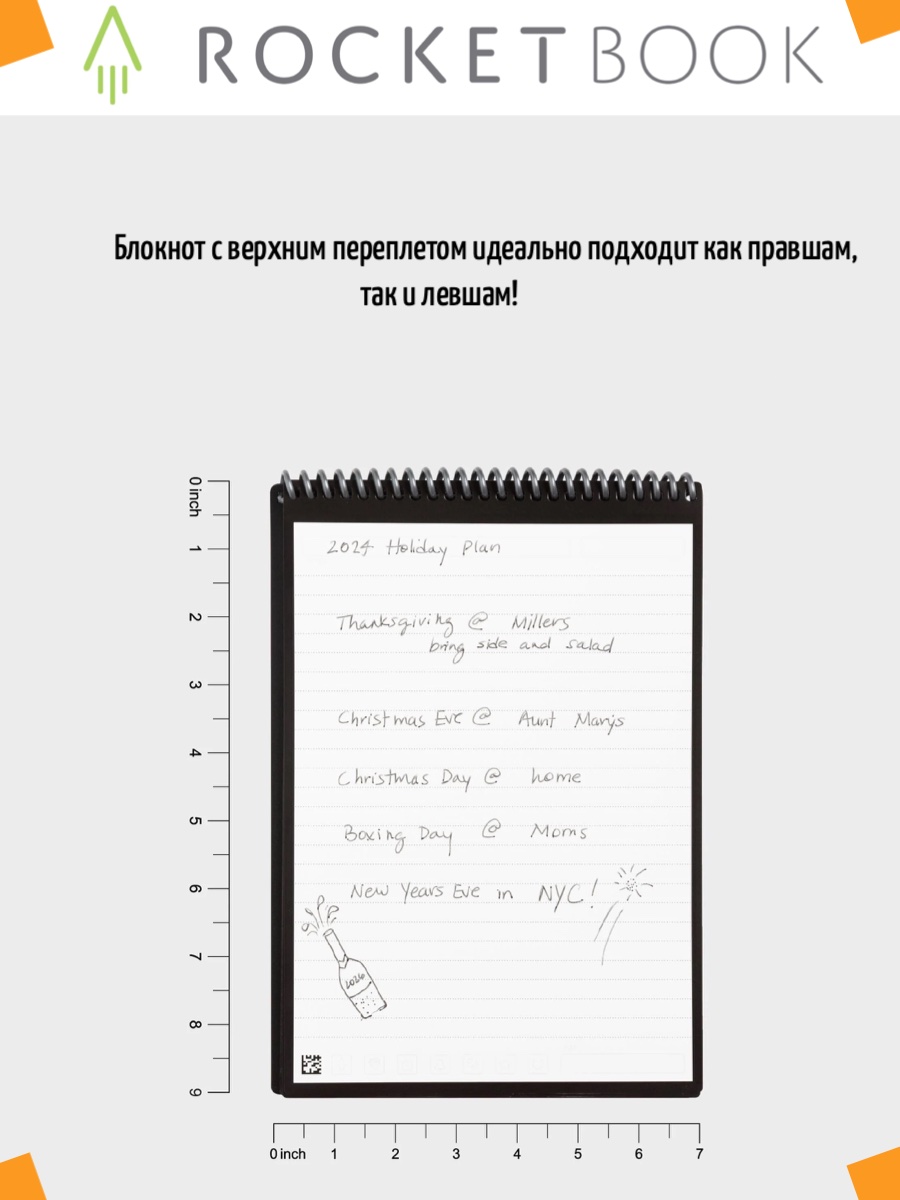 ROCKETBOOK
Блокнот с верхним переплетом идеально подходит как правшам,
так и левшам!
0 inch
1
2
3
4
5
6
7
8
9
2024 Holiday Plan
Thanksgiving @ Millers
bring side and salad
Christmas Eve @ Aunt Marys
Christmas Day @ home
Boxing Day @ Moms
New Years Eve in NYC!
2024
0 inch 1 2 3 4 5 6 7